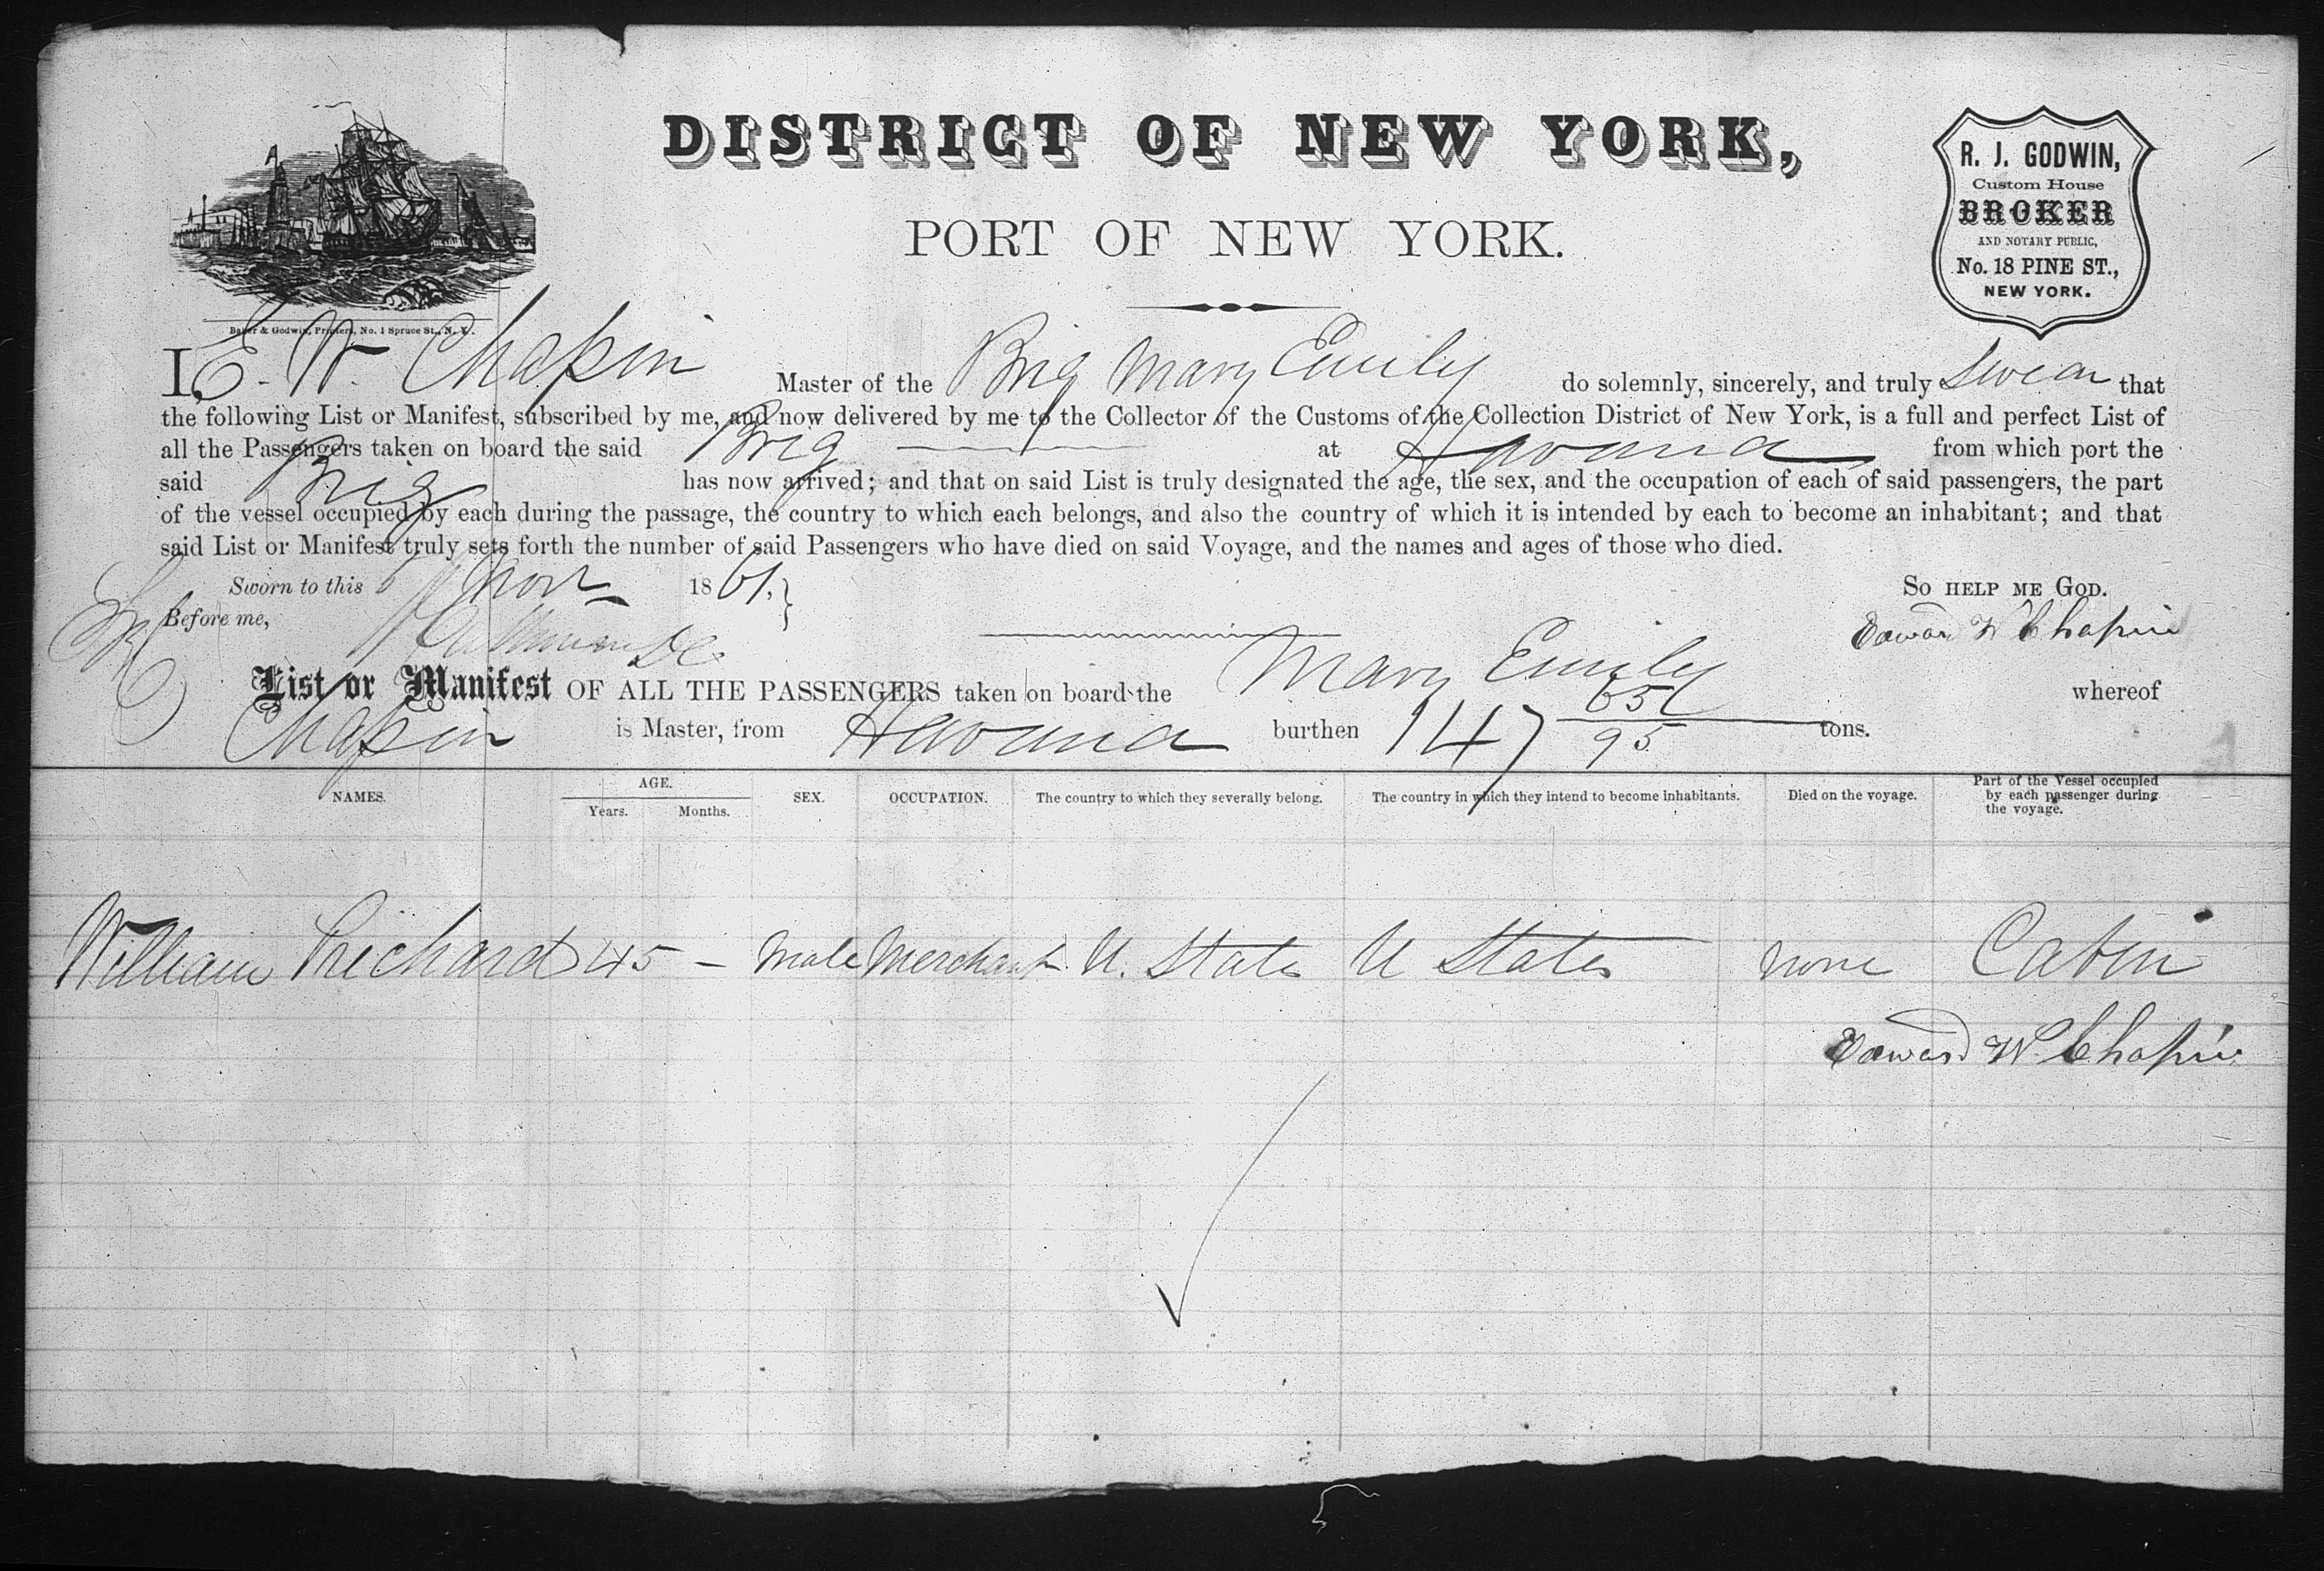 DISTRICT OF NEW YORK,
PORT OF NEW YORK.
R. J. GODWIN,
Custom House
BROKER
AND NOTARY PUBLIC,
No. 18 PINE ST.,
NEW YORK.
Baker & Godwin, Printers, No. 1 Spruce St., N. Y.
I, E. W. Chapin Master of the Brig Mary Emily do solemnly, sincerely, and truly swear that
the following List or Manifest, subscribed by me, and now delivered by me to the Collector of the Customs of the Collection District of New York, is a full and perfect List of
all the Passengers taken on board the said Brig at Havana from which port the
said Brig has now arrived; and that on said List is truly designated the age, the sex, and the occupation of each of said passengers, the part
of the vessel occupied by each during the passage, the country to which each belongs, and also the country of which it is intended by each to become an inhabitant; and that
said List or Manifest truly sets forth the number of said Passengers who have died on said Voyage, and the names and ages of those who died.
Sworn to this Nov 1861, } SO HELP ME GOD.
Before me, Edward W Chapin
List or Manifest OF ALL THE PASSENGERS taken on board the Mary Emily whereof
Chapin is Master, from Havana burthen 147 /95 tons.
NAMES. AGE. Years. Months. SEX. OCCUPATION. The country to which they severally belong. The country in which they intend to become inhabitants. Died on the voyage. Part of the Vessel occupied by each passenger during the voyage.
William Prichard 45 – Male Merchant U. States U States none Cabin
Edward W. Chapin